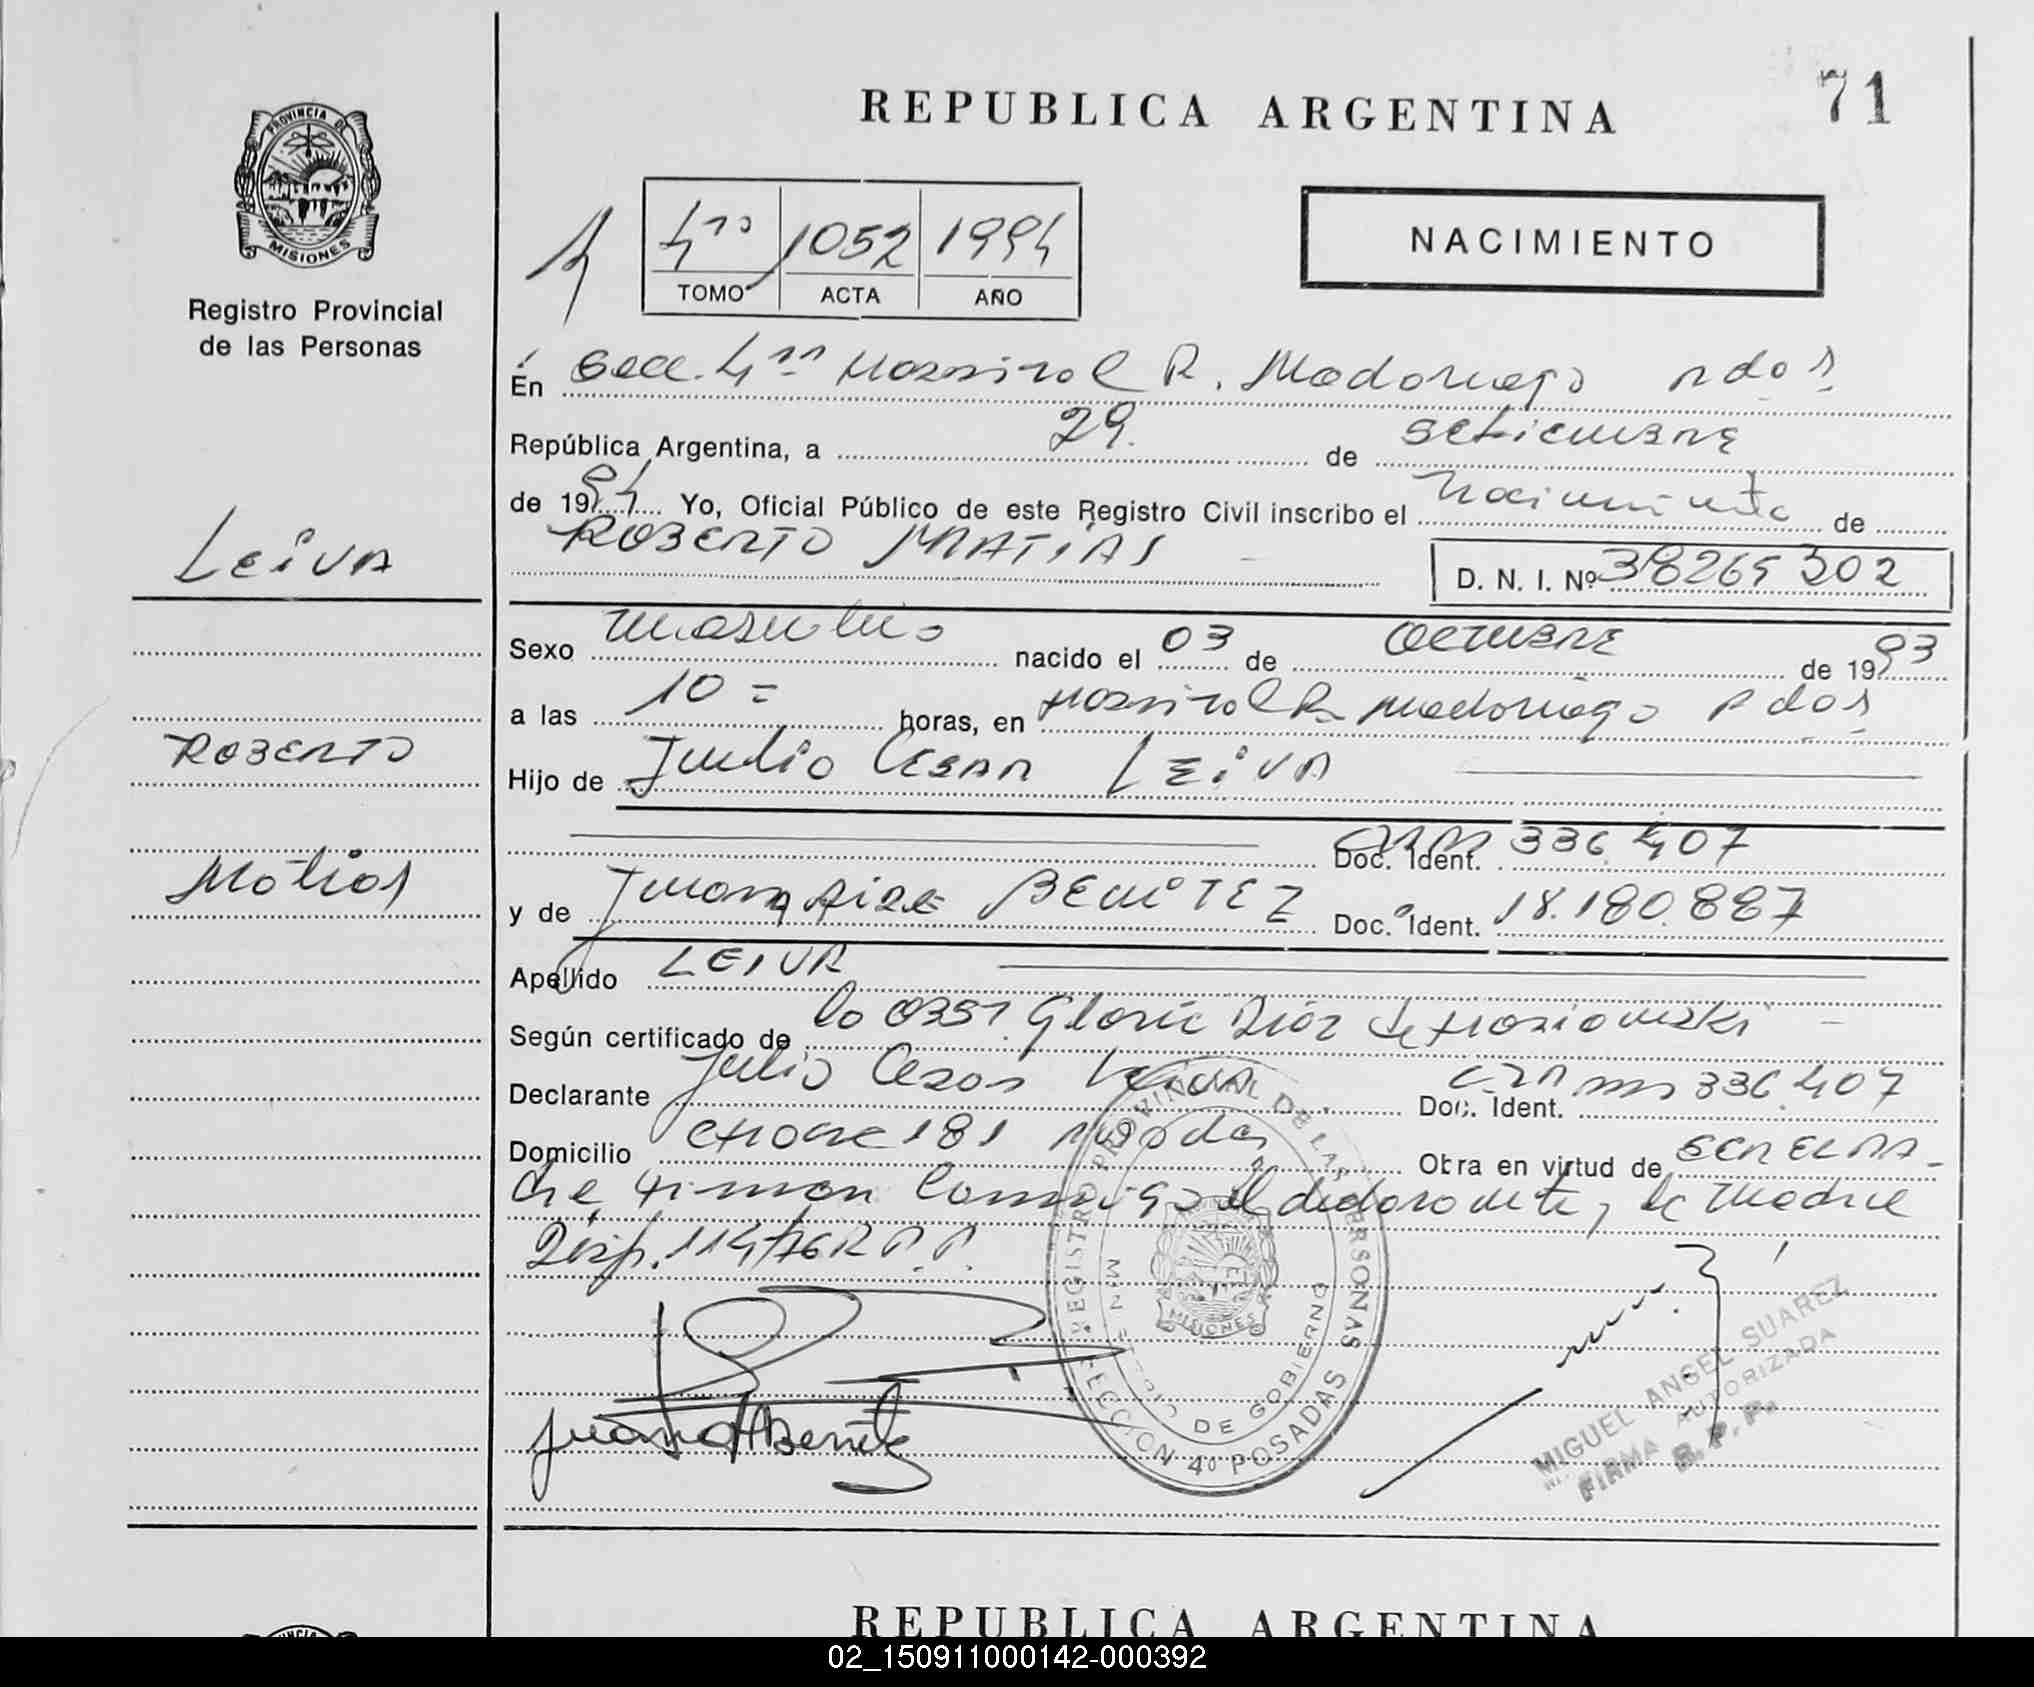 REPUBLICA ARGENTINA
71
PROVINCIA DE
MISIONES
Registro Provincial
de las Personas
4to 1052 1994
TOMO ACTA AÑO
NACIMIENTO
En Secc. 4ta Hospital R. Madariaga Pdas
República Argentina, a 29 de Setiembre
de 1994 Yo, Oficial Público de este Registro Civil inscribo el nacimiento de
LEIVA
ROBERTO MATIAS
D. N. I. Nº 38265302
Sexo masculino nacido el 03 de Octubre de 1993
a las 10 = horas, en Hospital R. Madariaga Pdas
ROBERTO
Hijo de Julio Cesar LEIVA
Doc. Ident. 336.407
Matias
y de Juana BENITEZ Doc. Ident. 18.180.887
Apellido LEIVA
Según certificado de la 0351 Gloria Diaz de
Declarante Julio Cesar Leiva Doc. Ident. 336.407
Domicilio 181 Obra en virtud de
firman conmigo el declarante, la madre
Disp. 114/76 R.P.P.
REGISTRO PROVINCIAL DE LAS PERSONAS
MINISTERIO DE GOBIERNO
MISIONES
SECCION 4º POSADAS
MIGUEL ANGEL SUAREZ
FIRMA AUTORIZADA
R.P.P.
REPUBLICA ARGENTINA
02_150911000142-000392